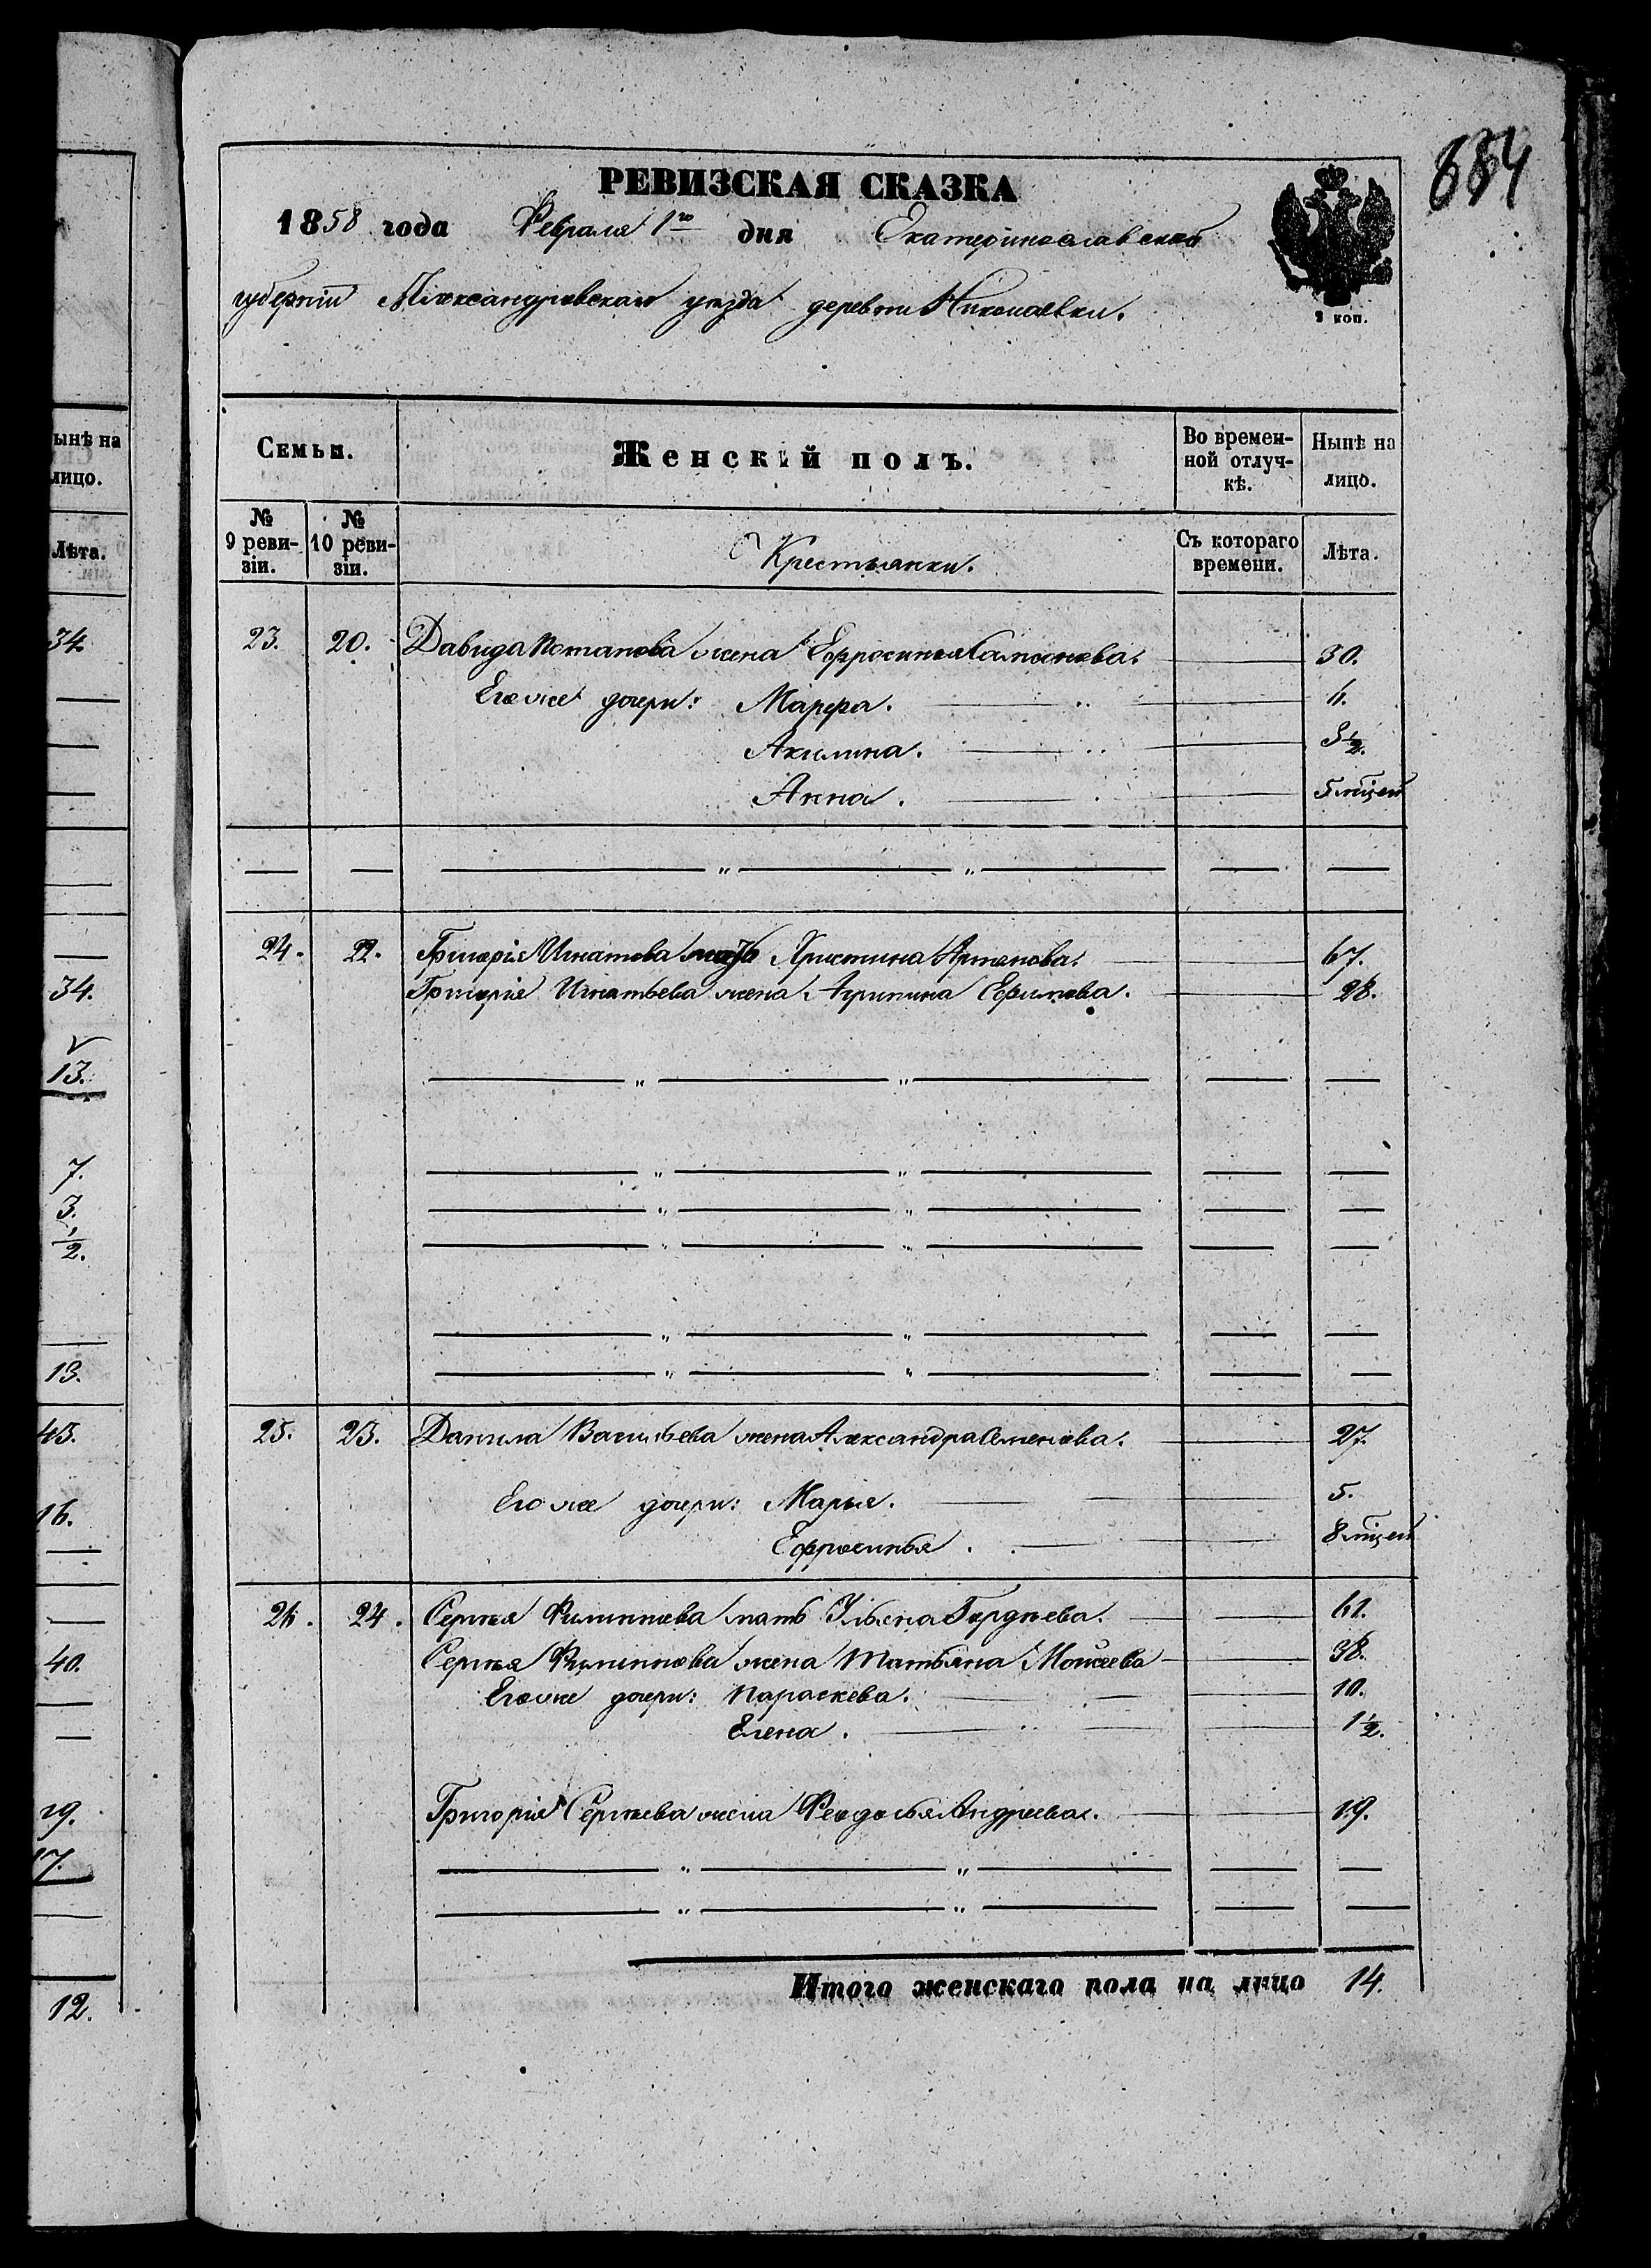 684
РЕВИЗСКАЯ СКАЗКА
1858 года Февраля 1го дня Екатеринославской
губерніи Александровскаго уѣзда деревни Николаевки.
1 коп.
ынѣ на
лицо.
Лѣта.
34.
34.
13.
7.
3.
1/2.
13.
45.
16.
40.
19.
17.
12.
Семьи. Женскій полъ. Во времен-ной отлуч-кѣ. Нынѣ на лицо.
№ 9 реви-зіи. № 10 реви-зіи. Крестьянки. Съ котораго времени. Лѣта.
23. 20. Давида Потапова жена Ефросинья 30.
Его же дочери: Марфа. 6.
Акилина. 3 1/2.
Анна. 5 мѣсец
24. 22. Григорія Игнатова мать Христина Артемова. 67.
Григорія Игнатьева жена Агрипина Ефимова. 28.
25. 23. Данила Васильева жена Александра Семенова. 27.
Его же дочери: Марья. 5.
Ефросинья. 8 мѣсец
26. 24. Сергѣя Филиппова мать Ульяна Гордѣева. 61.
Сергѣя Филиппова жена Татьяна Моисеева 38.
Его же дочери: Параскева. 10.
Елена. 1 1/2.
Григорія Сергѣева жена Феодосья Андреева. 19.
Итого женскаго пола на лицо 14.